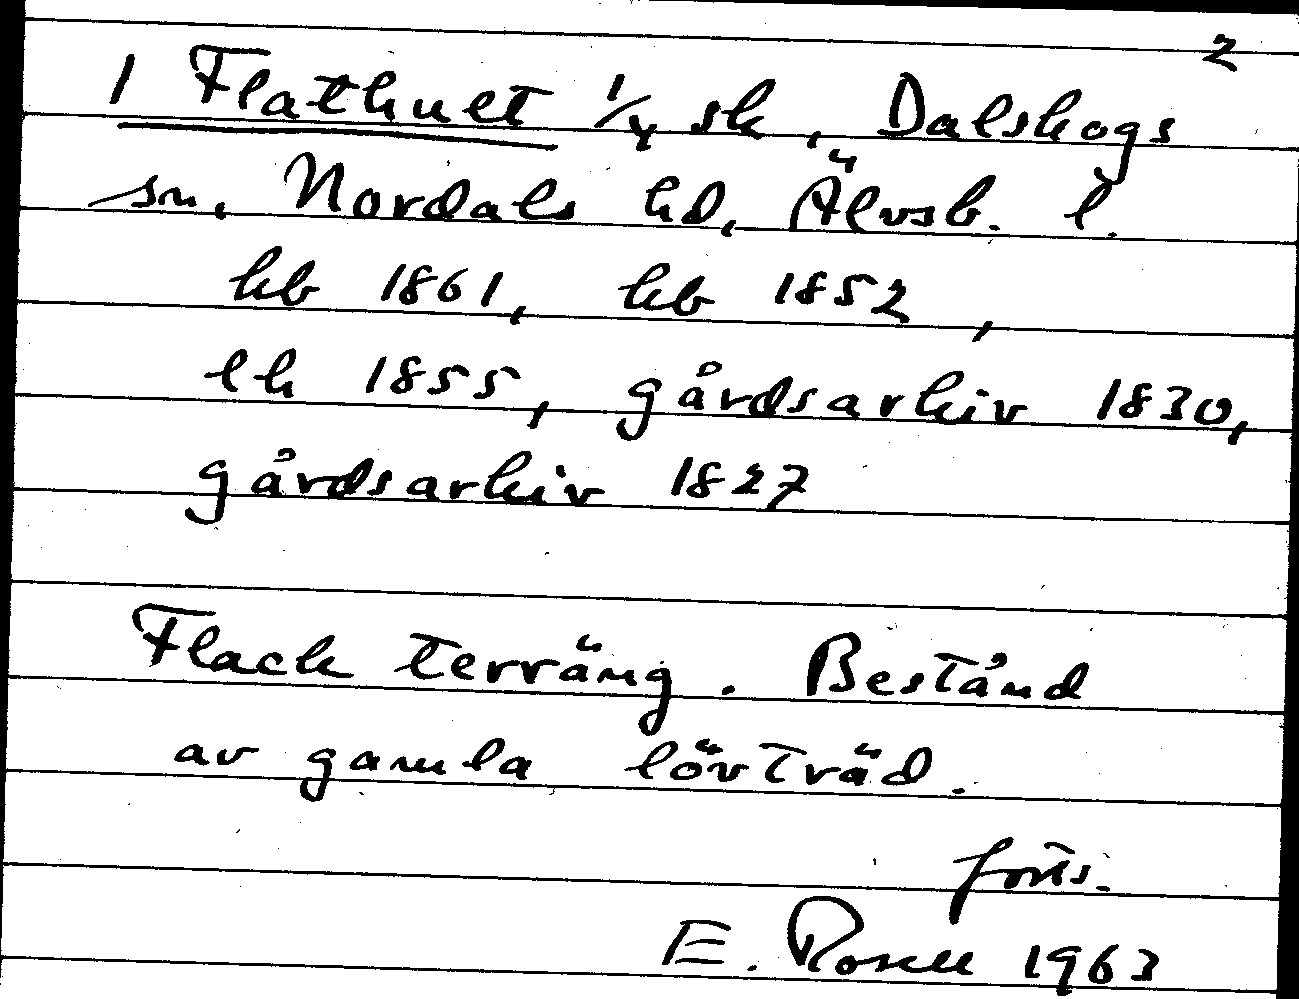 2
1 Flathult 1/4 sk, Dalskogs
sn, Nordals hd, Älvsb. l.
hb 1861, hb 1852,
lh 1855, gårdsarkiv 1830,
gårdsarkiv 1827
Flack terräng. Bestånd
av gamla lövträd.
forts.
E. Rosell 1963